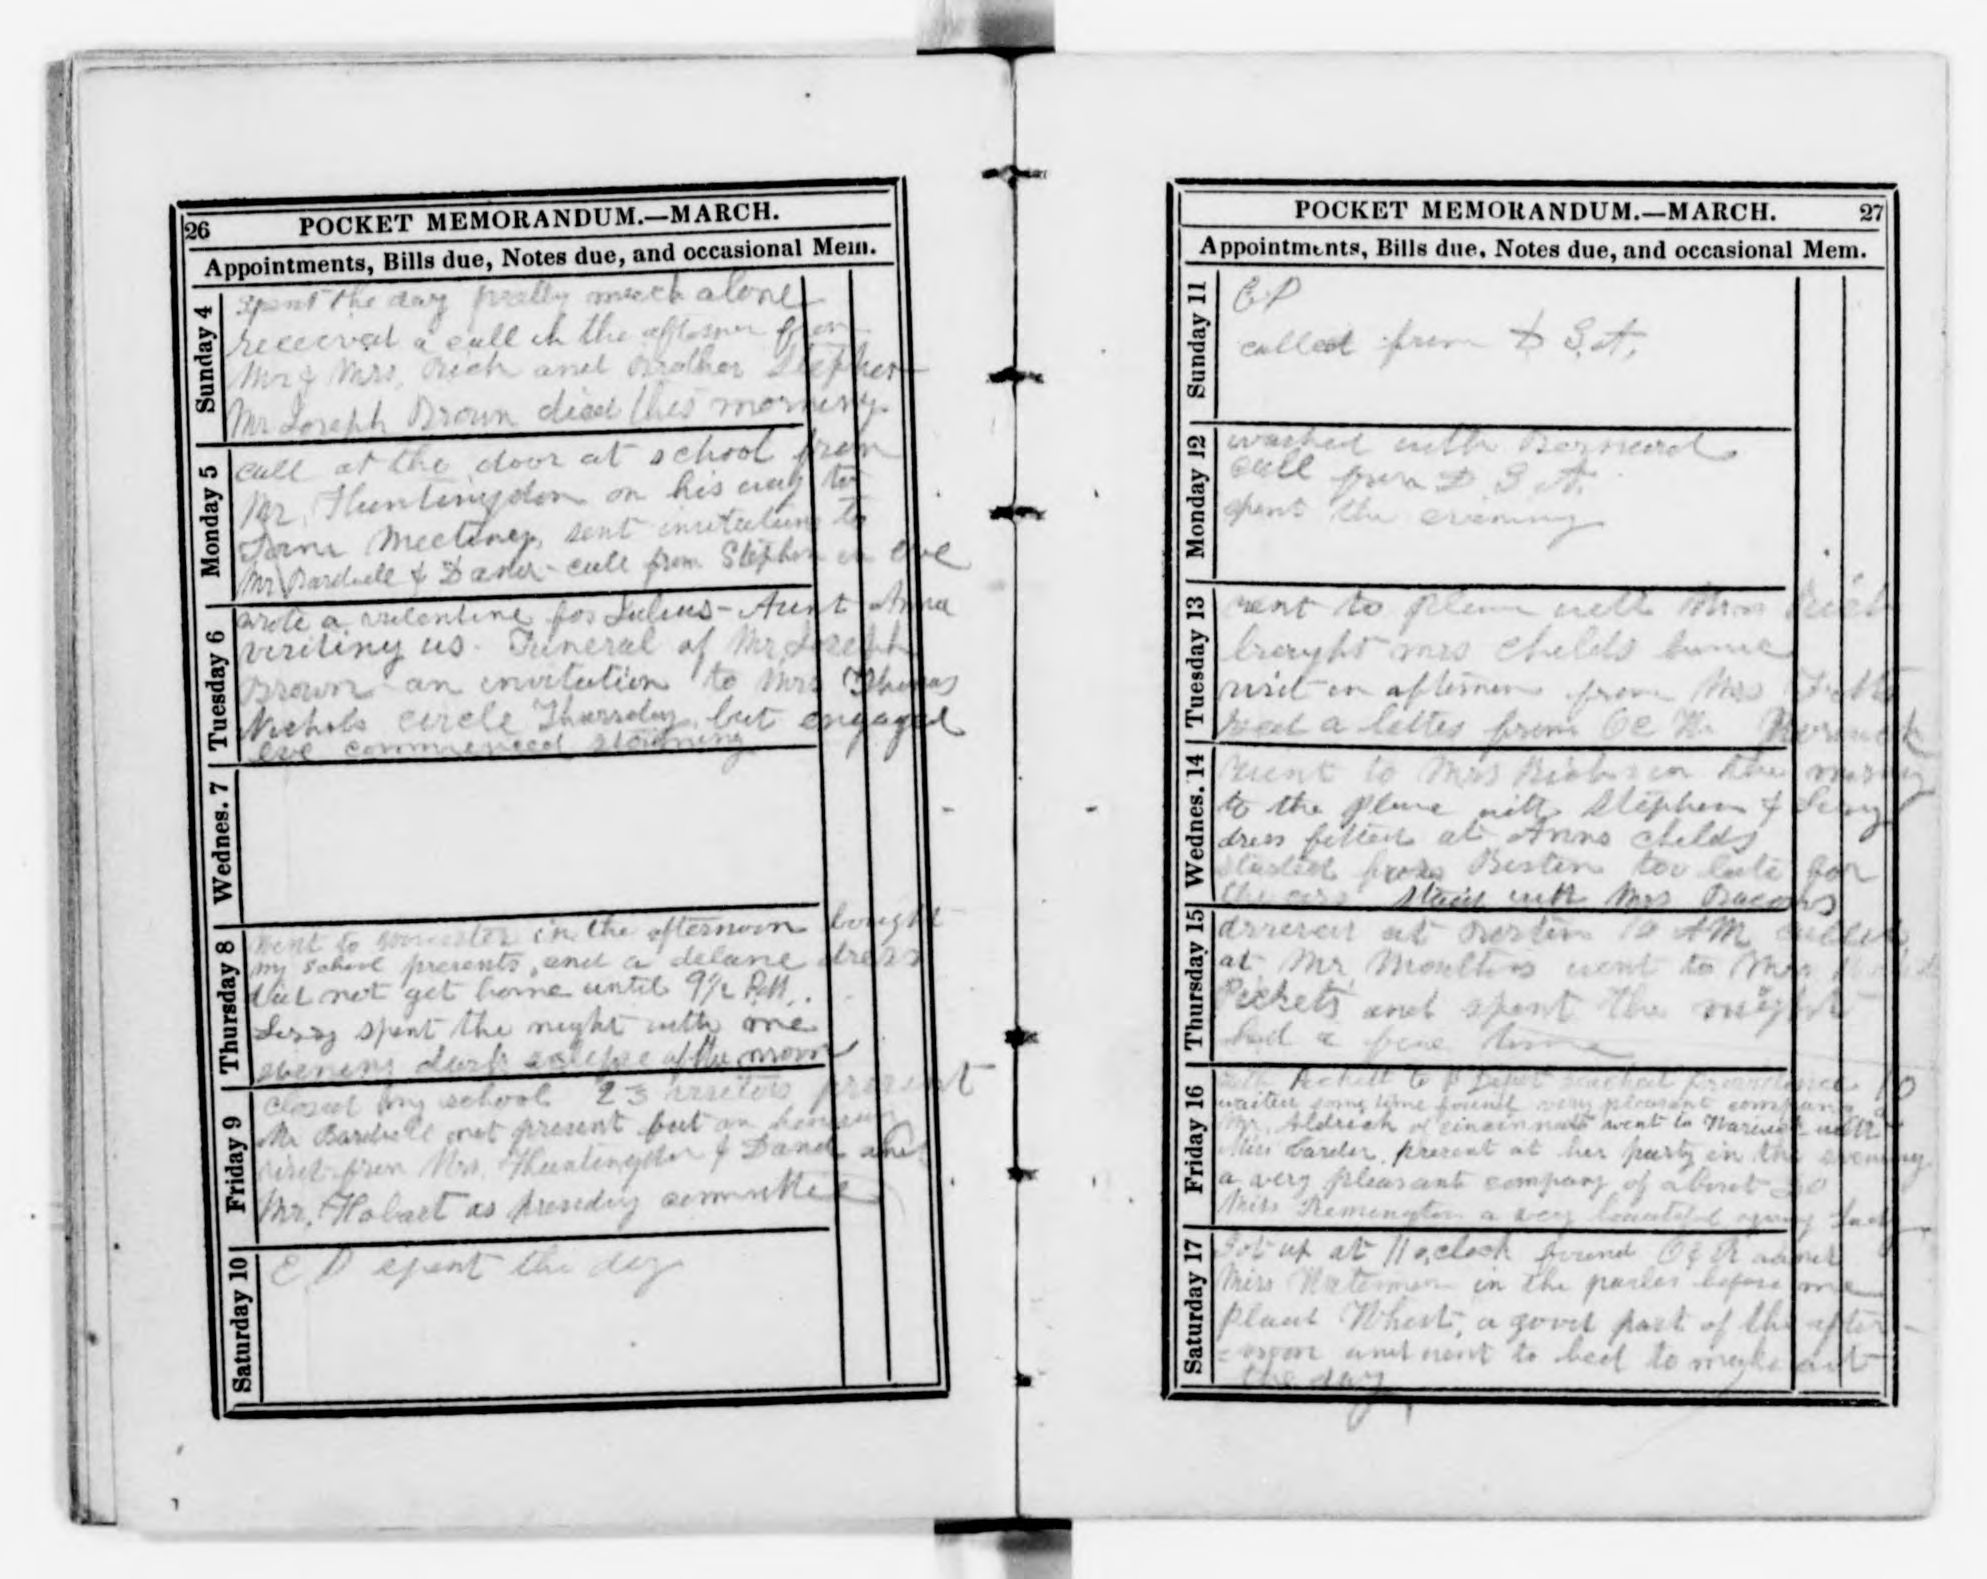 26 POCKET MEMORANDUM.—MARCH.
Appointments, Bills due, Notes due, and occasional Mem.
Sunday 4
spent the day pretty much alone
received a call in the afternoon from
Mr & Mrs. Rich and Brother Stephen
Mr Joseph Brown died this morning
Monday 5
call at the door at school from
Mr. Huntingdon on his way to
Town Meeting, sent invitations to
Mr Bardwell & Dana - call from Stephen in eve
Tuesday 6
wrote a valentine for Julius - Aunt Anna
visiting us. Funeral of Mr. Joseph
Brown - an invitation to Mrs Thomas
Nichols circle Thursday, but engaged
eve commenced storming
Wednes. 7
Thursday 8
went to worcester in the afternoon bought
my school presents, and a delane dress
did not get home until 9½ P.M.
spent the night with me
evening dark eclipse of the moon
Friday 9
closed my school 23 visitors present
Mr Bardwell not present but an
visit from Mrs. Huntingdon & Dana and
Mr. Hobart as presiding committee
Saturday 10
E D spent the day
POCKET MEMORANDUM.—MARCH. 27
Appointments, Bills due, Notes due, and occasional Mem.
Sunday 11
called from D S. A.
Monday 12
washed with Bernard
call from D. S. A.
spent the evening
Tuesday 13
went to plain with Mrs Rich
brought mrs Childs home
visit in afternoon from Mrs
read a letter from
Wednes. 14
went to Mrs in the morning
to the plane with Stephen &
dress fitted at Anna Childs
started from Boston too late for
the cars staid with Mrs Bacons
Thursday 15
arrived at Boston 10 AM called
at Mr Moultons went to Mrs
Picketts and spent the night
had a fine time
Friday 16
with Pickett to P Depot reached Providence 10
waited some time found very pleasant company a
Mr. Aldrich of cincinnati went to Warwick with
Miss Carder. present at her party in the evening
a very pleasant company of about 20
Miss Remington a very beautiful young lady
Saturday 17
Got up at 11 o,clock found and
Miss Waterman in the parlor before me
Plaed Whist, a good part of the after-
=noon and went to bed to make out
the day